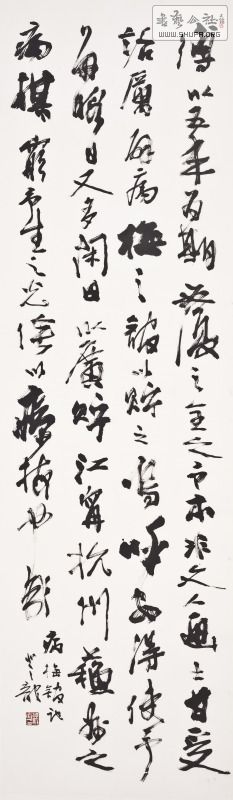 縛以五年為期必復之全之予本非文人畫士甘受
詬厲辟病梅之館以貯之嗚呼安得使予
多暇日又多閑田以廣貯江寧杭州蘇州之
病梅窮予生之光陰以療梅也哉
病梅館記
龍
书艺公社
WWW.SHUFA.ORG